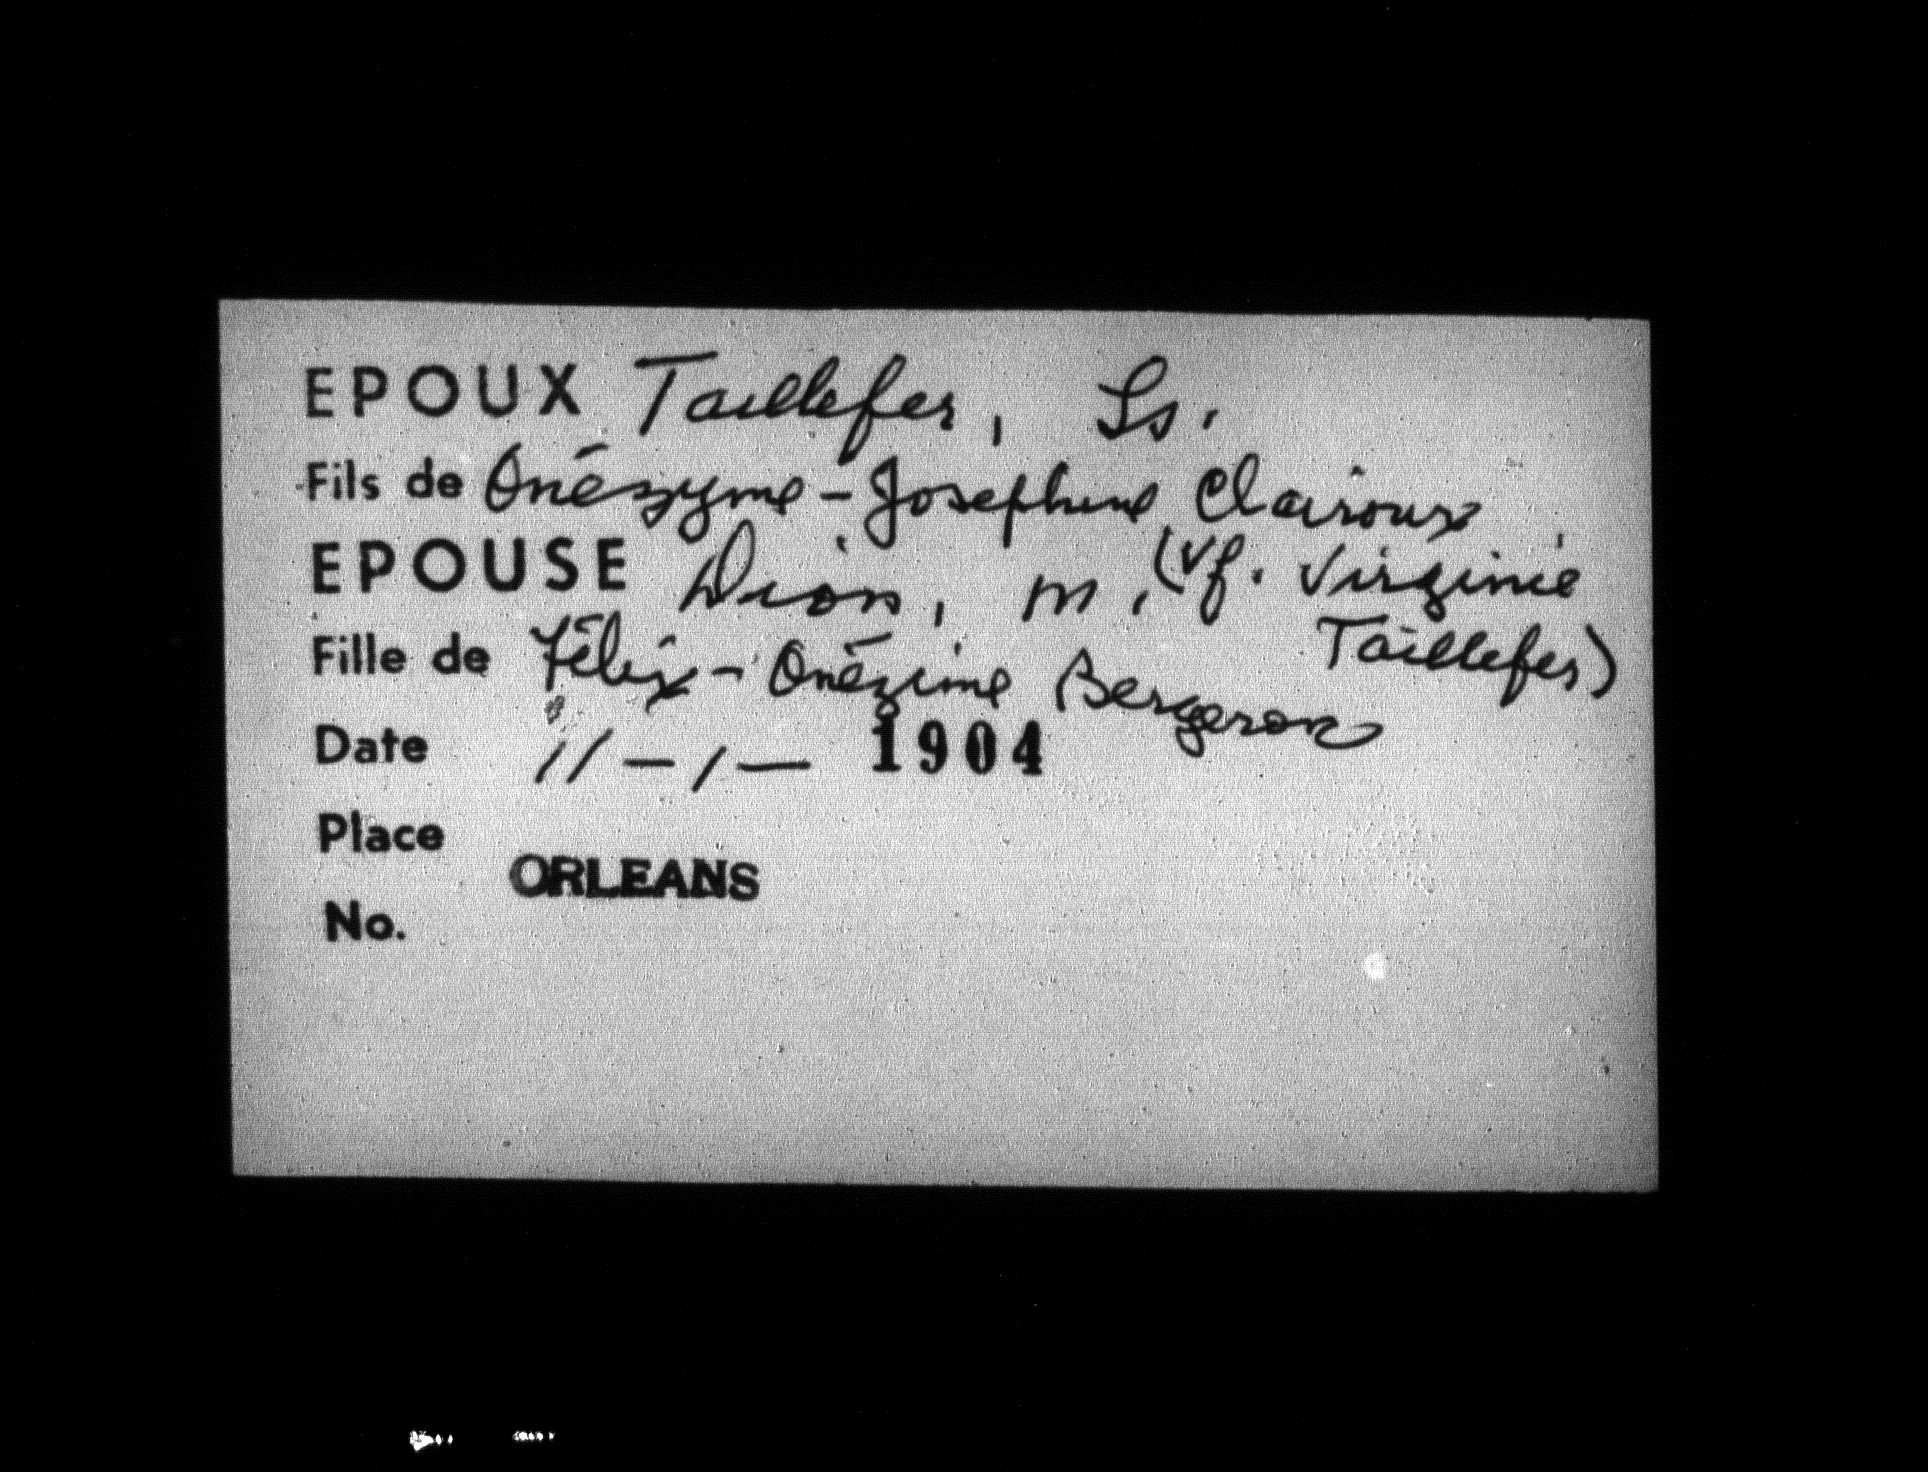 EPOUX Taillefer, Ls.
Fils de Onézyme - Josephine Clairoux
EPOUSE Dion, M. (Vf. Virginie
Taillefer)
Fille de Félix - Onézime Bergeron
Date 11 - 1 - 1904
Place
ORLEANS
No.